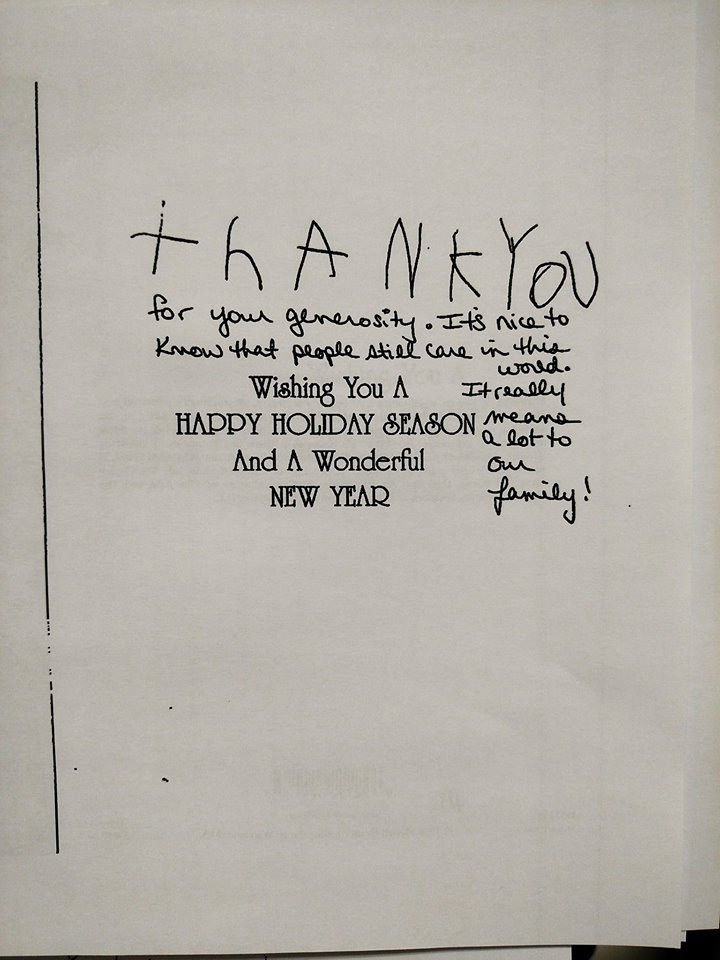 tHANKYOU
for your generosity. It's nice to
know that people still care in this
world.
It really
means
a lot to
our
family!
Wishing You A
HAPPY HOLIDAY SEASON
And A Wonderful
NEW YEAR